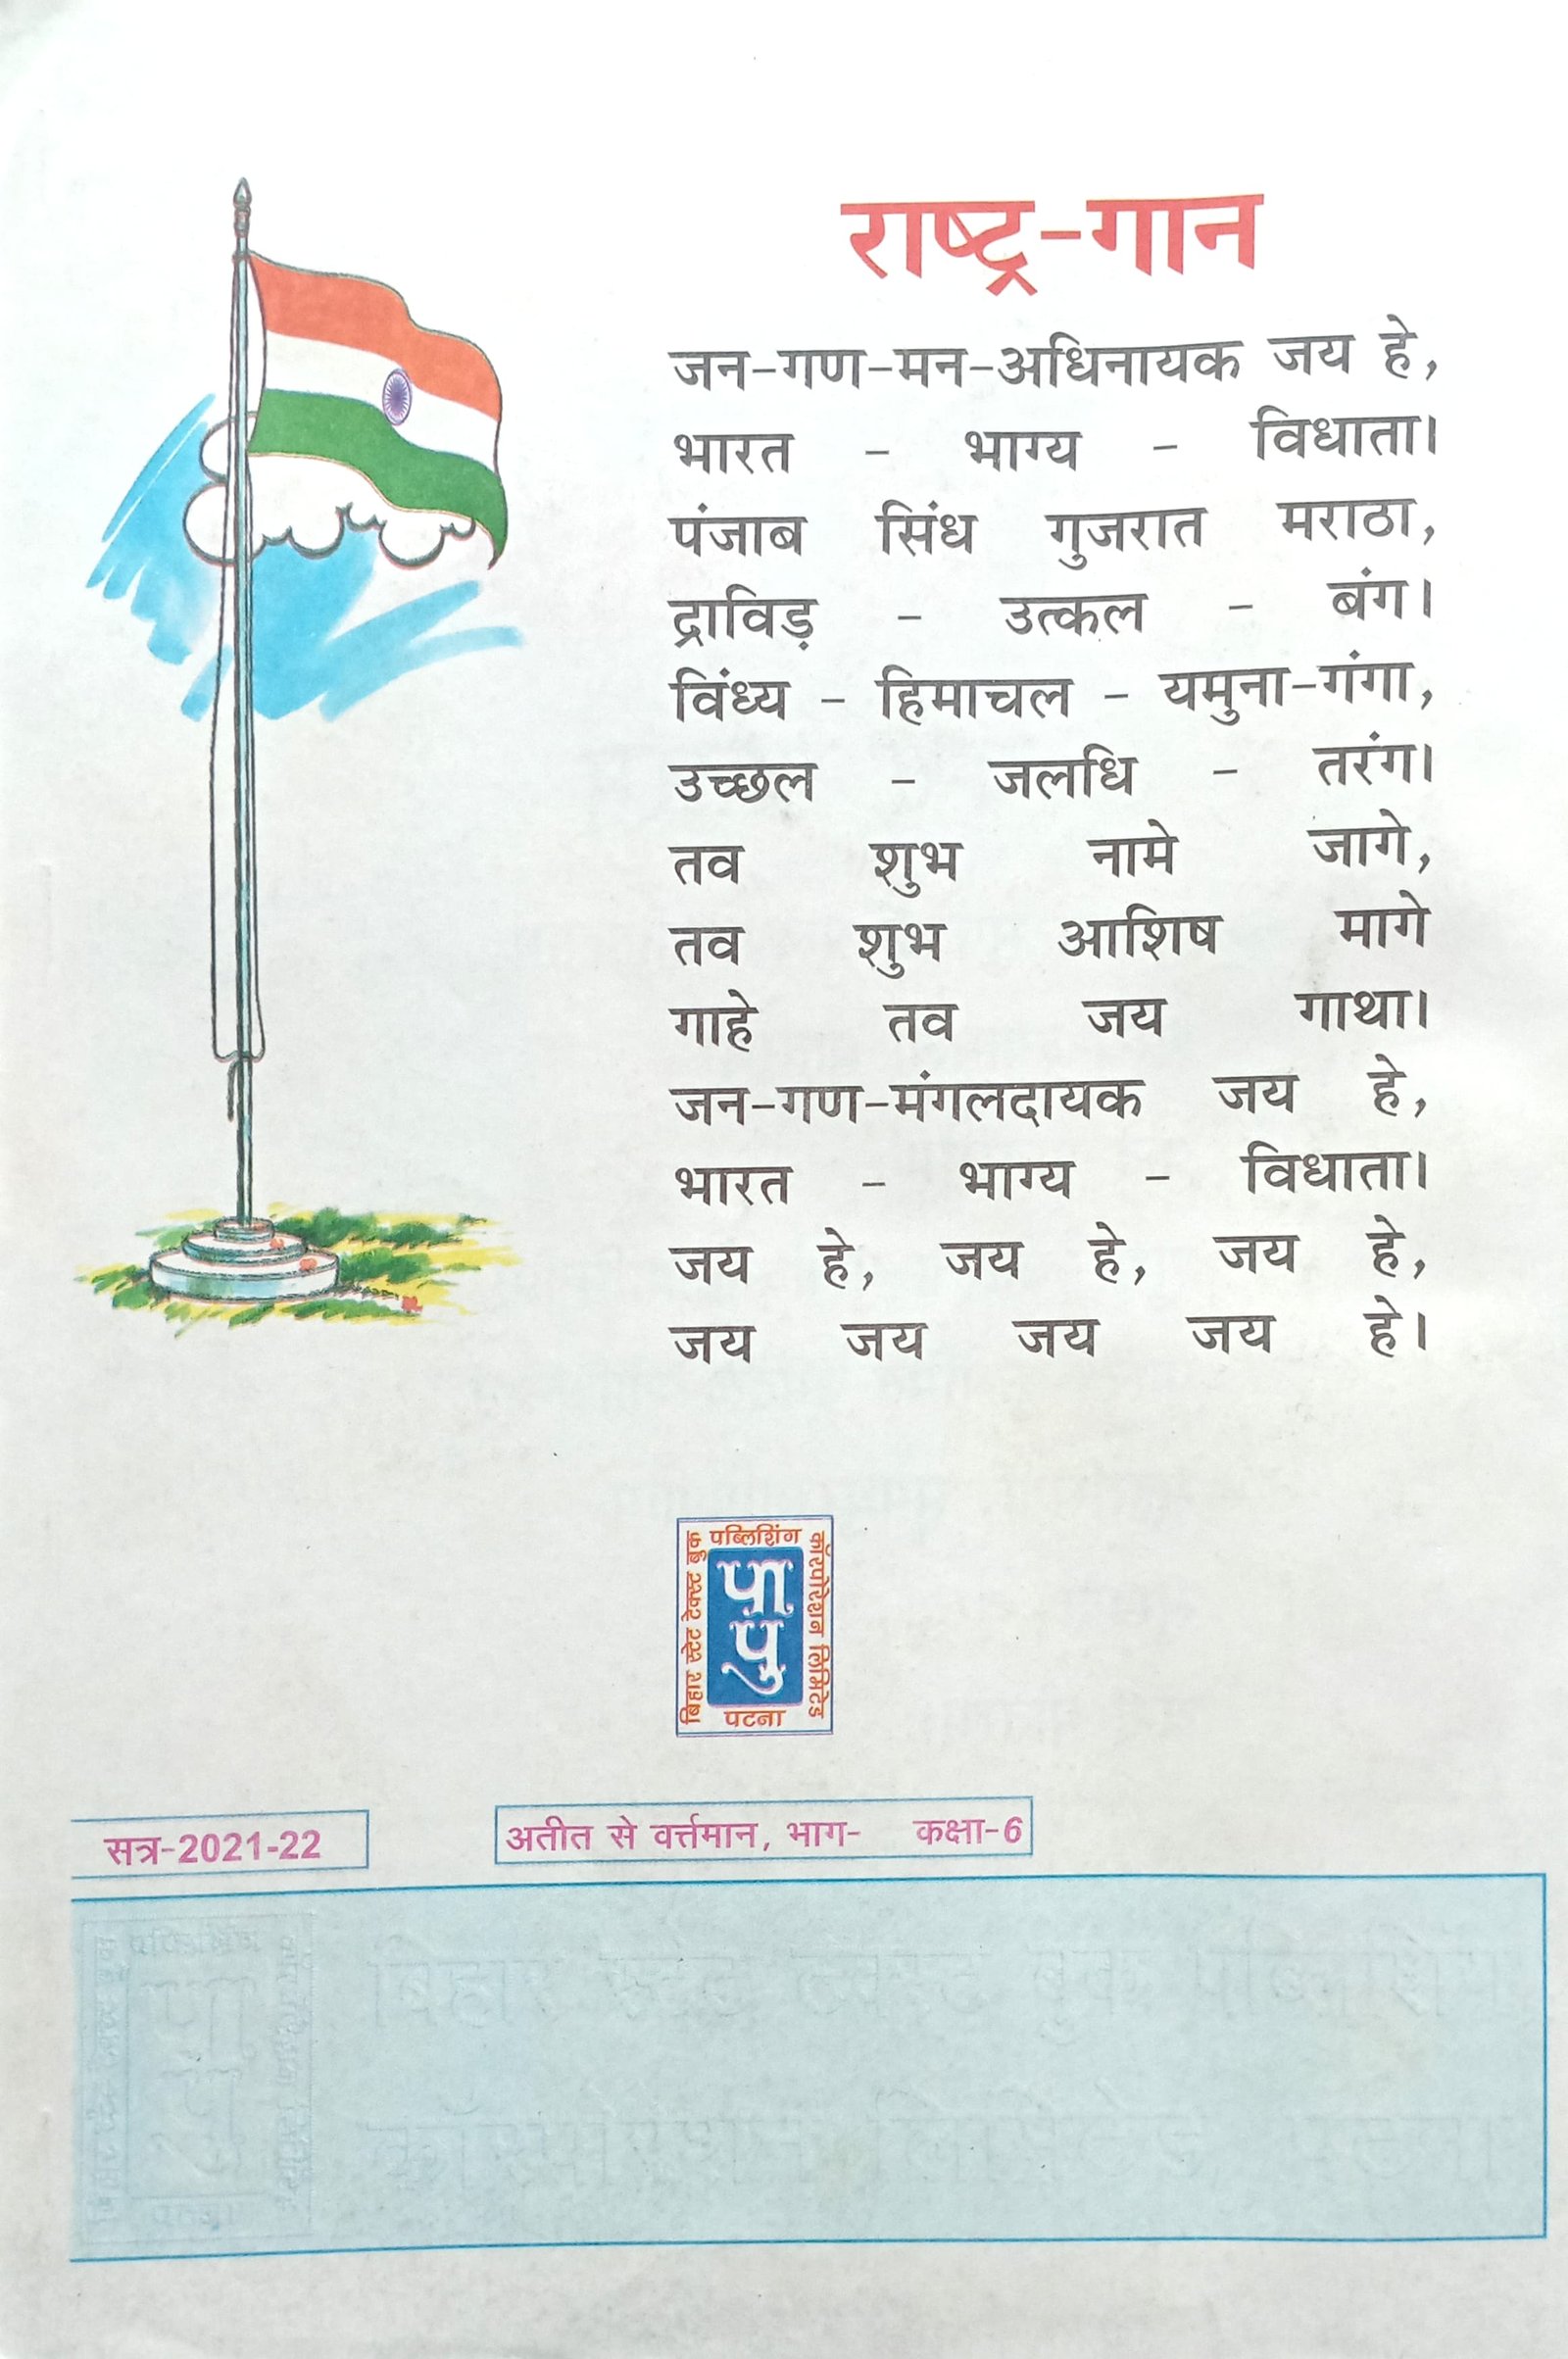 राष्ट्र-गान
जन-गण-मन-अधिनायक जय हे,
भारत - भाग्य - विधाता।
पंजाब सिंध गुजरात मराठा,
द्राविड़ - उत्कल - बंग।
विंध्य - हिमाचल - यमुना-गंगा,
उच्छल - जलधि - तरंग।
तव शुभ नामे जागे,
तव शुभ आशिष मागे
गाहे तव जय गाथा।
जन-गण-मंगलदायक जय हे,
भारत - भाग्य - विधाता।
जय हे, जय हे, जय हे,
जय जय जय जय हे।
बिहार स्टेट टेक्स्ट बुक
पब्लिशिंग
कॉरपोरेशन लिमिटेड
पा
पु
पटना
सत्र-2021-22
अतीत से वर्त्तमान, भाग- कक्षा-6
बिहार स्टेट टेक्स्ट बुक पब्लिशिंग
कॉरपोरेशन लिमिटेड, पटना